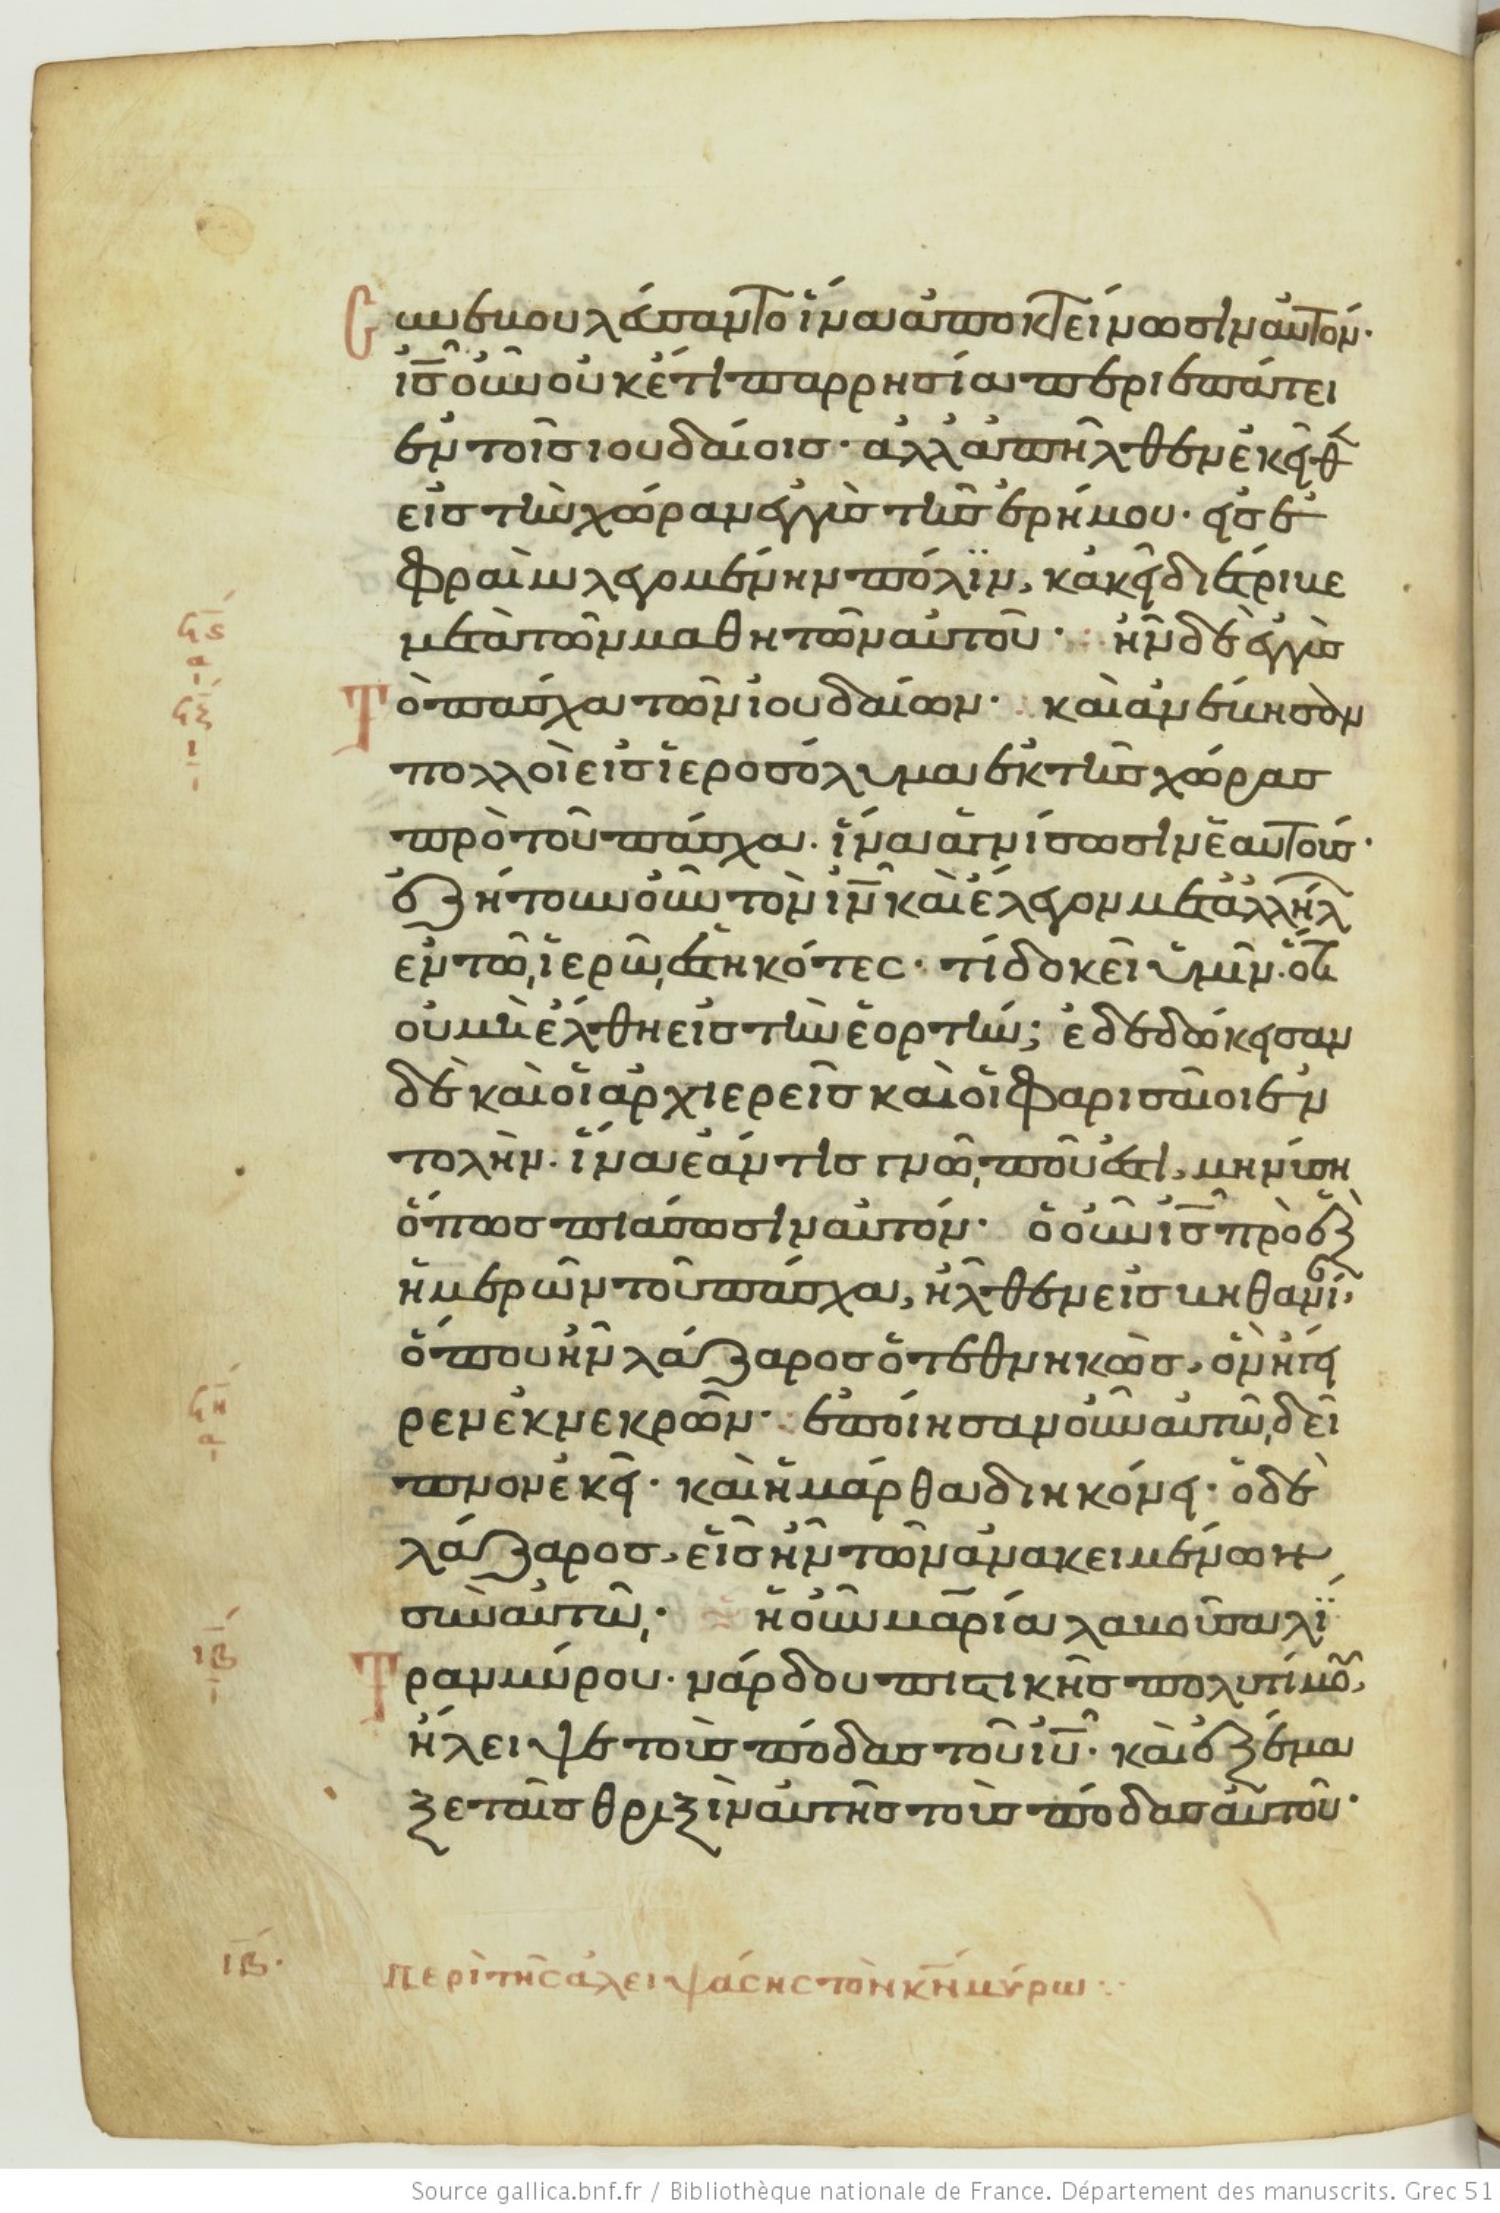 Συνεβουλεύσαντο ἵνα ἀποκτείνωσιν αὐτόν·
ἰ̅ς̅ οὖν οὐκέτι παρρησία περιεπάτει
ἐν τοῖς ιουδαίοις· ἀλλὰ ἀπῆλθεν ἐκεῖθ
εἰς τὴν χώραν ἐγγὺς τῆς ἐρήμου· εἰς ἐ
φραὶμ λεγομένην πόλϊν, κἀκεῖ διέτριβε
μετὰ τῶν μαθητῶν αὐτοῦ· ἦν δὲ ἐγγὺς
Τὸ πάσχα τῶν ἰουδαίων· καὶ ἀνέβησὸν
πολλοὶ εἰς ἱεροσόλυμα ἐκ τῆς χώρας
πρὸ τοῦ πάσχα. ἵνα ἁγνίσωσιν ἑαυτούς·
ἐζήτουν οὖν τὸν ἰ̅ν̅ καὶ ἔλεγον μετὰ ἀλλήλ
ἐν τῶ, ἱερῶ, ἑστηκότες· τί δοκεῖ ὑμῖν· ὅτι
οὐ μὴ ἔλθη εἰς τὴν ἑορτήν; ἐδεδώκεισαν
δὲ καὶ οἱ ἀρχιερεῖς καὶ οἱ φαρισαῖοι ἐν
τολὴν· ἵνα ἐάν τις γνῶ, ποῦ ἐστι, μηνύση
ὅπως πιάσωσιν αὐτόν· ὁ οὖν ἰ̅ς̅ πρὸ ἓξ
ἡμερῶν τοῦ πάσχα, ἦλθεν εἰς βηθανί,
ὅπου ἦν λάζαρος ὁ τεθνηκὼς, ὃν ἤγει
ρεν ἐκ νεκρῶν· ἐποίησαν οὖν αὐτῶ, δεῖ
πνον ἐκεῖ· καὶ ἡ μάρθα διηκόνει· ὁ δὲ
λάζαρος, εἷς ἦν τῶν ἀνακειμένων
σὺν αὐτῶ,· ἡ οὖν μαρία λαβοῦσα λϊ
Τραν μύρου· νάρδου πιστικῆς πολυτίμου,
ἤλειψε τοὺς πόδας τοῦ ἰ̅υ̅· καὶ ἐξέμα
ξε ταῖς θριξὶν αὐτῆς τοὺς πόδας αὐτοῦ·
ιβ· περὶ τῆς ἀλειψάσης τὸν κ̅ν̅ μύρω